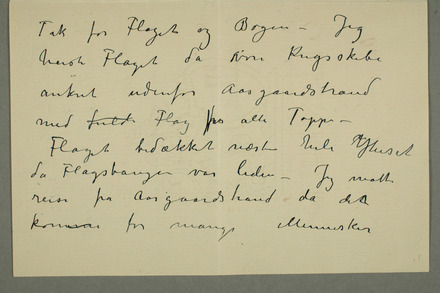 Tak for Flaget og Bogen – Jeg
heiste Flaget da vore Krigsskibe
ankret udenfor Aasgaardstrand
med fuldt Flag fra alle Toppe –
Flaget bedækket næsten hele Huset
da Flagstangen var liden – Jeg måtte
reise fra Aasgaardstrand da det
kommer for mange Mennesker